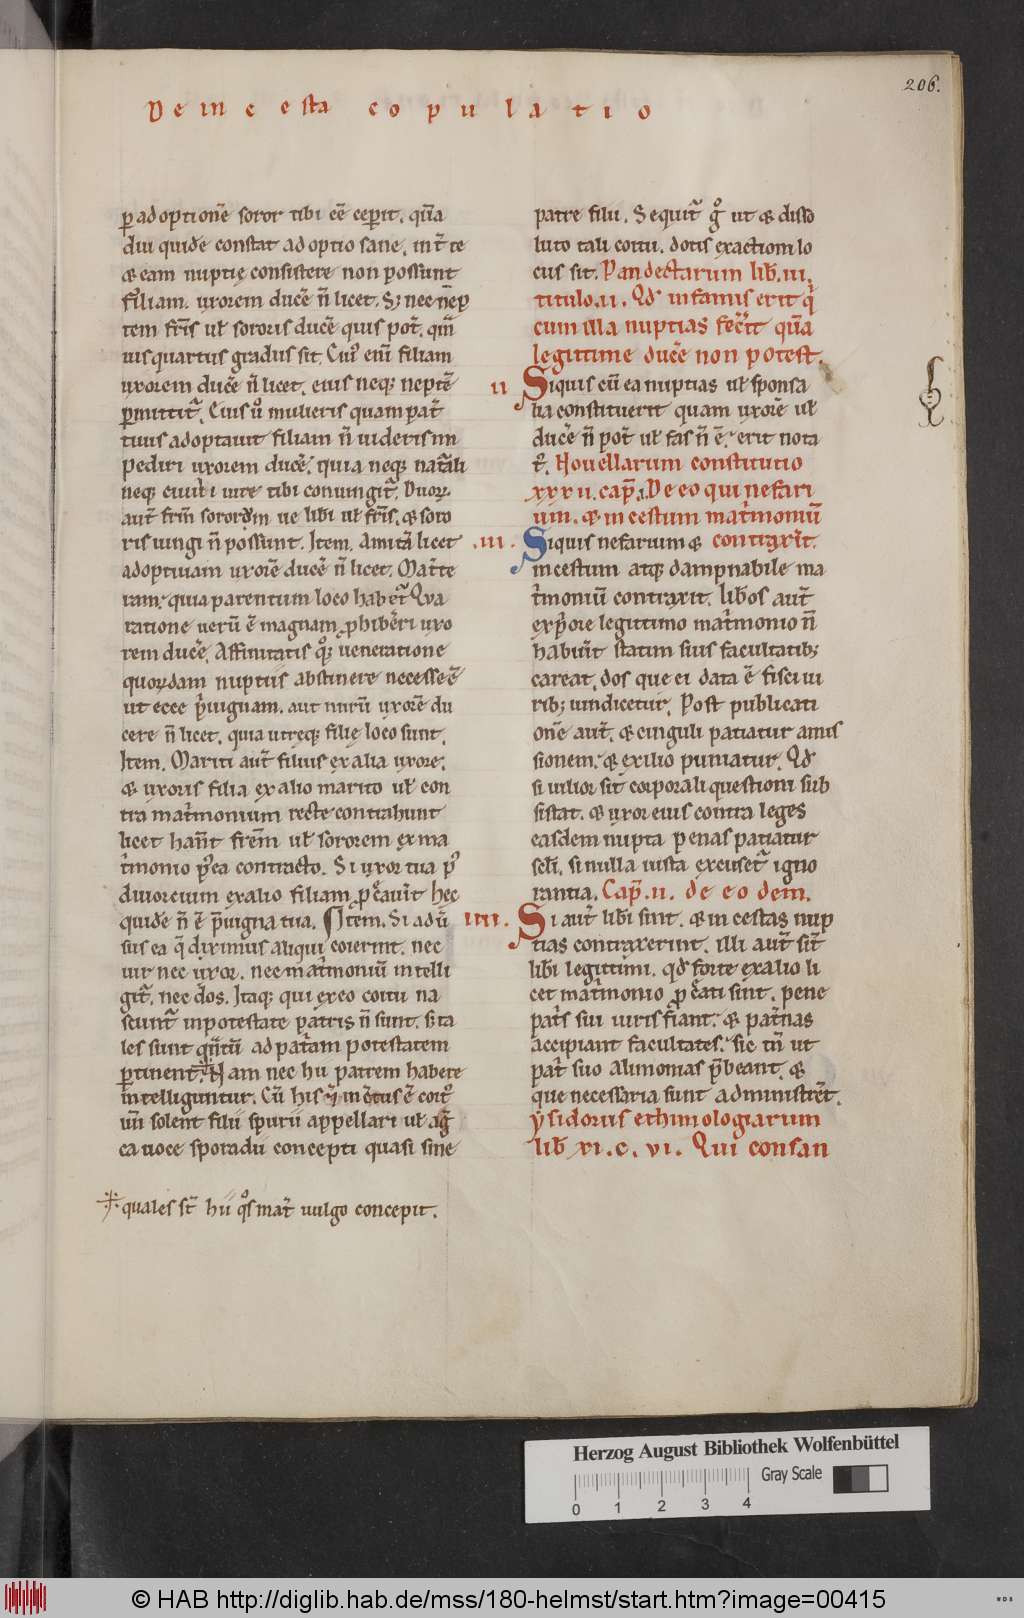 206.
De incesta copulatio
p adoptionē soror tibi eē ceperit. quā
diu quidē constat adoptio sane. int̄ te
& eam nuptię consistere non possunt
Filiam. uxorem ducē n̄ licet. S; nec nep
tem frīs uł sororis ducē quis pot̄. qm̄
uis quartus gradus sit. Cuiꝰ eni filiam
uxorem ducē n̄ licet. eius neq; neptē
pmittit̄. Eius ů mulieris quam pat̄
tuus adoptauit filiam n̄ uideris im
pediri uxorem ducē. quia neq; nat̄ali
neq; ciuili iure tibi coniungit̄. Duoꝝ
aut̄ frm̄ sororūm ue libi uł frīs. & soro
ris iungi n̄ possunt. Item. Amitā licet
adoptiuam uxorē ducē n̄ licet. Mat̄te
ram. quia parentum loco habet̄. Qua
ratione uerū ē magnam phibēri uxo
rem ducē. Affinitatis qꝫ ueneratione
quoꝝdam nuptiis abstinere necesse ē
ut ecce p̄iuignam. aut nurū uxorē du
cere n̄ licet. quia utręq; filię loco sunt.
Item. Mariti aut̄ filius ex alia uxore.
& uxoris filia ex alio marito uł con
tra mat̄monium recte contrahunt
licet hān̄t frēm uł sororem ex ma
t̄monio pꝰea contracto. Si uxor tua pꝰ
diuorcium ex alio filiam pc̄auit hec
quidē n̄ ē p̄uigna tua. Item. Si adū
sus ea q̄ diximus aliqui coierint. nec
uir nec uxor. nec mat̄moniū intelli
git̄. nec dos. Itaq; qui ex eo coitu na
scunt̄ in potestate patris n̄ sunt. s; ta
les sunt qn̄tū ad pat̄am potestatem
ptinent. Nam nec hii patrem habere
intelliguntur. Cū his &̄ incertus ē coitꝰ
uñ solent filii spurii appellari uł a g̅
ca uoce sporadii concepti quasi sine
quales st̄ hii qͦs mat̄ uulgo concepit.
patre filii. Sequit̄ gͦ ut & disso
luto tali coitu. dotis exactioni lo
cus sit. Pandectarum lib̄. iii.
titulo. ii. Qd infamis erit q̇
cum illa nuptias fec̄it quā
legittime ducē non potest.
ii Siquis cū ea nuptias uł sponsa
lia constituerit quam uxorē uł
ducē n̄ pot̄ uł fas n̄ ē. erit nota
tꝰ. Nouellarum constitutio
xxxii. cap̄. i. De eo qui nefari
um. & incestum mat̄moniū
.iii. Siquis nefarium & contraxit.
incestum atq; dampnabile ma
t̄moniū contraxit. libos aut̄
ex p̄ore legittimo mat̄monio n̄
habuit statim suis facultatib;
careat. dos que ei data ē fisci iu
rib; uindicetur. Post publicati
onē aut̄. & cinguli patiatur amis
sionem. & exilio puniatur. Qd
si uilior sit corporali questioni sub
sistat. & uxor eius contra leges
easdem nupta penas patiatur
scłi. si nulla iusta excuset̄ igno
rantia. Cap̄. ii. de eodem.
iiii. Si aut̄ libi sint. & incestas nup
tias contraxerint. illi aut̄ sīt
libi legittimi. qd forte ex alio li
cet mat̄monio pc̄ati sint. pene
pat̄s sui iuris fiant. & pat̄nas
accipiant facultates. sic tn̄ ut
pat̄ suo alimonias p̄beant. &
que necessaria sunt administret̄.
ysidorus ethimologiarum
lib̄ xi. c. vi. Qui consan
Herzog August Bibliothek Wolfenbüttel
0 1 2 3 4
Gray Scale
© HAB http://diglib.hab.de/mss/180-helmst/start.htm?image=00415